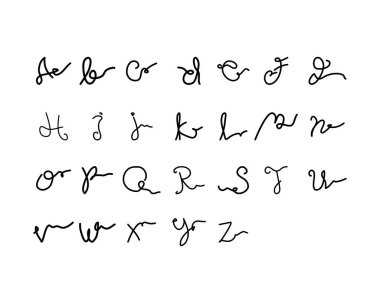 A b C d e F g
H I j k l M n
O P Q R S T U
V W X Y Z